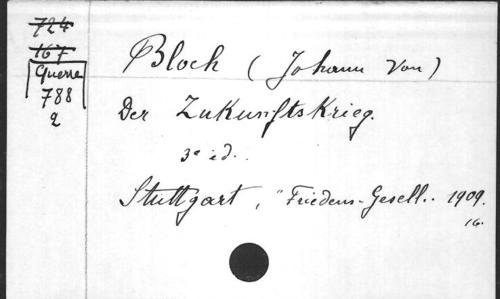 724
167
Guerre
788
2
Bloch (Johann von)
Der Zukunftskrieg.
3e éd.
Stuttgart, "Friedens-Gesell.. 1909.
16.